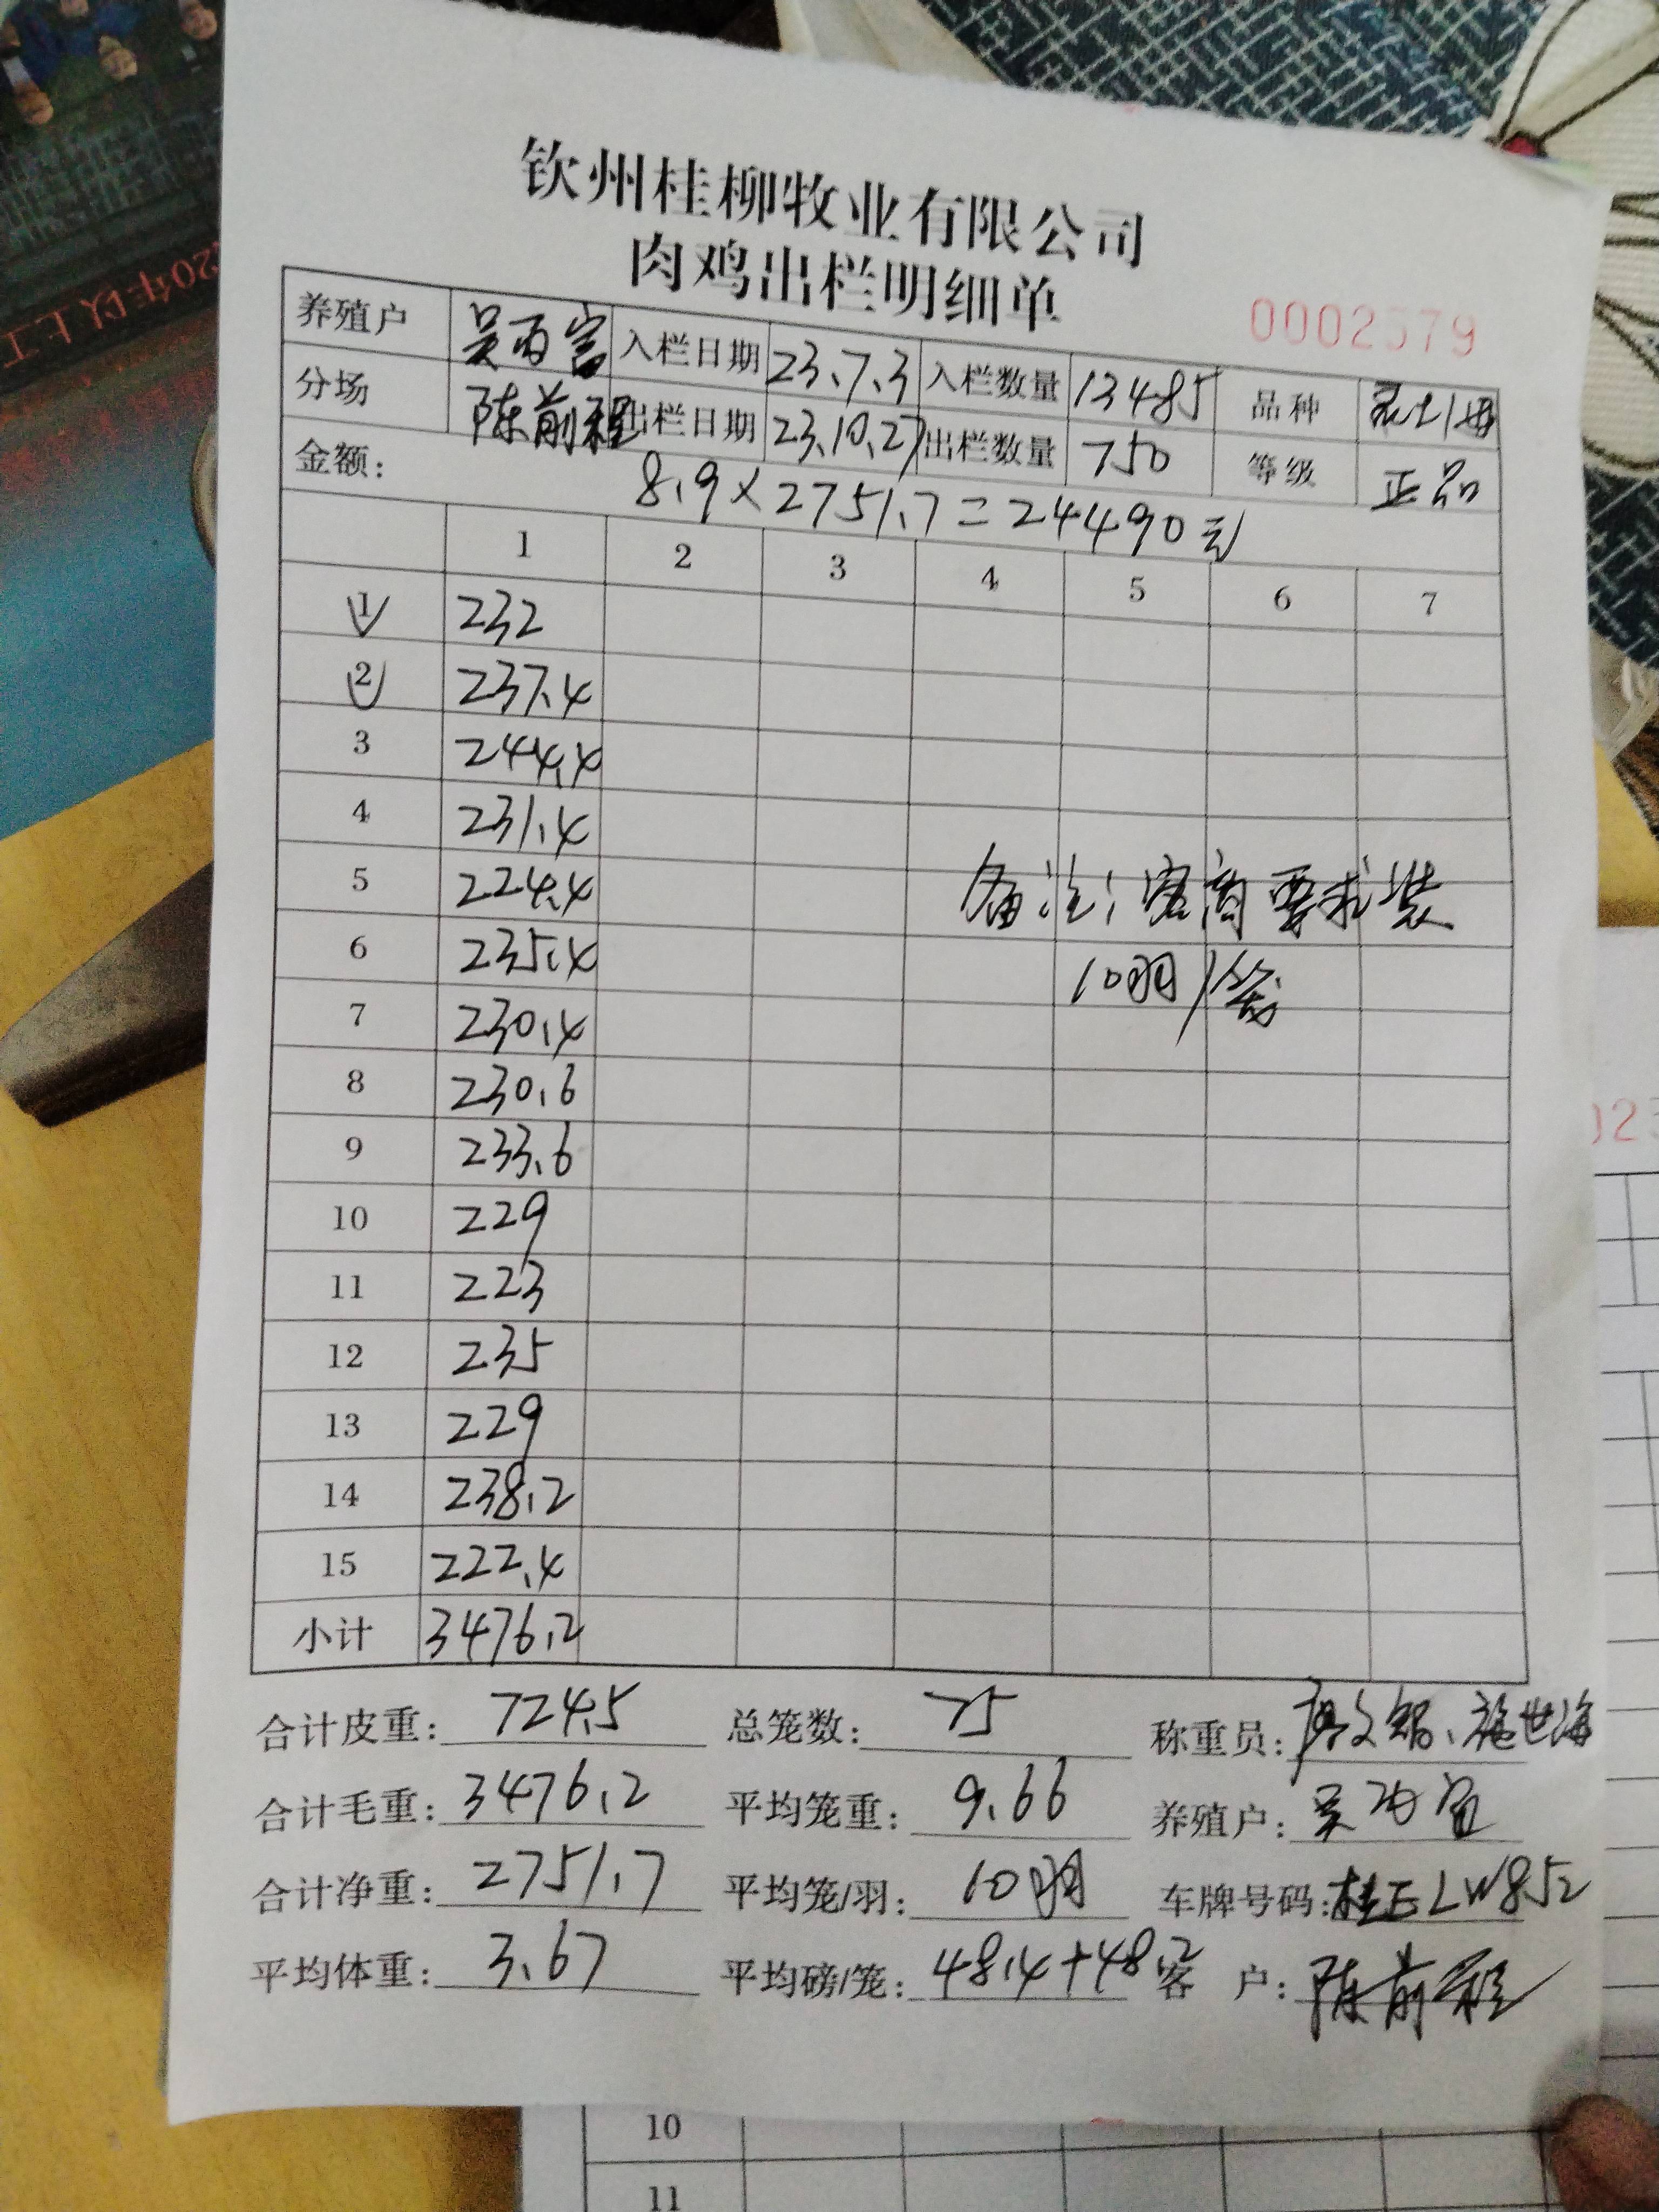 钦州桂柳牧业有限公司
肉鸡出栏明细单
0002579
养殖户 吴 入栏日期 23.7.3 入栏数量 13485 品种
分场 陈前程 出栏日期 23.10.27 出栏数量 750 等级 正品
金额: 8.9×2751.7=24490元
1 2 3 4 5 6 7
1 232
2 237.4
3 244.4
4 231.4
5 224.4
6 235.4
7 230.4
8 230.6
9 233.6
10 229
11 223
12 235
13 229
14 238.2
15 222.4
小计 3476.2
备注:客商要求装
10羽/笼
合计皮重: 724.5 总笼数: 75 称重员: 施世海
合计毛重: 3476.2 平均笼重: 9.66 养殖户: 吴
合计净重: 2751.7 平均笼/羽: 10羽 车牌号码: 桂ELW852
平均体重: 3.67 平均磅/笼: 48.4+48.2 客 户: 陈前程
20年以上工
023
10
11